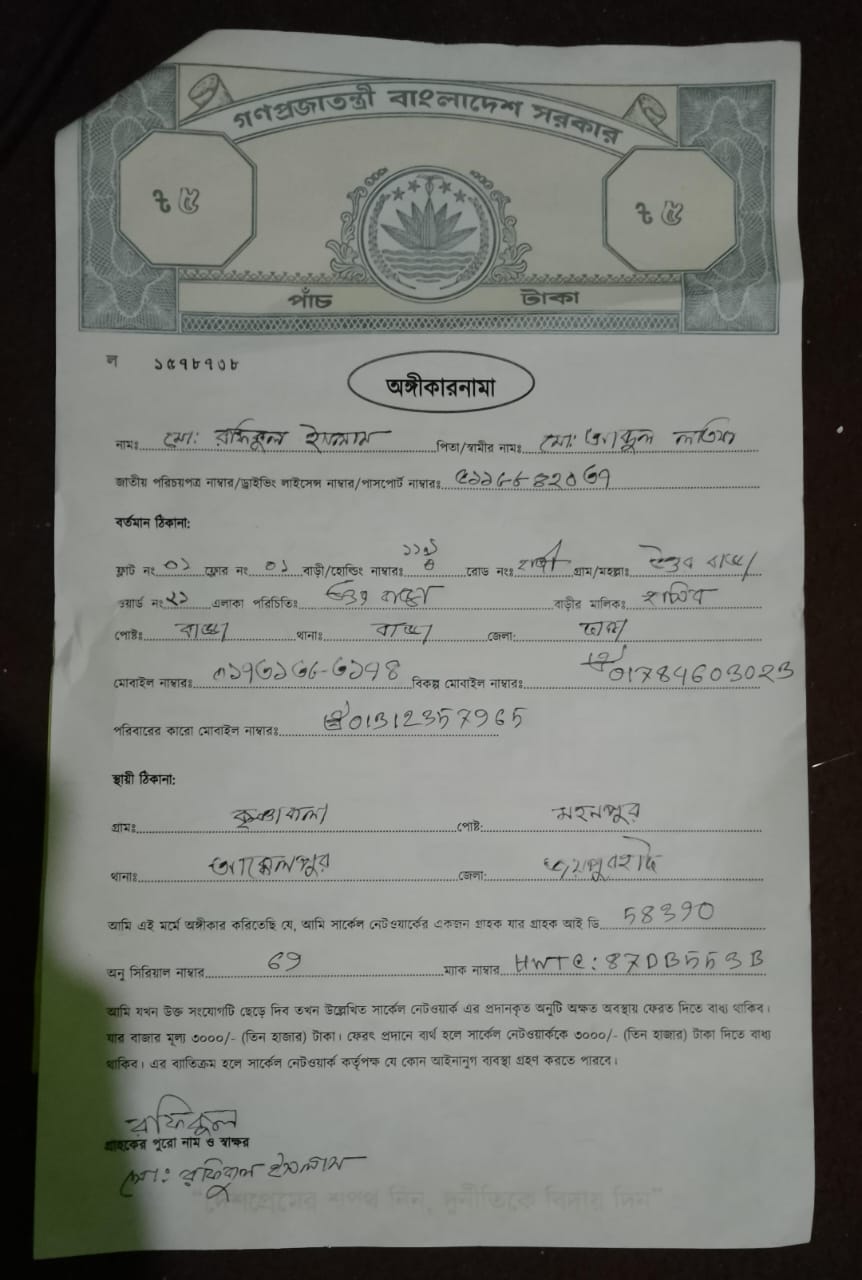 গণপ্রজাতন্ত্রী বাংলাদেশ সরকার
৳ ৫ ৳ ৫
পাঁচ টাকা
ল ১৫৭৮৭৩৮
অঙ্গীকারনামা
নামঃ মো: রফিকুল ইসলাম পিতা/স্বামীর নামঃ মো: আব্দুল লতিফ
জাতীয় পরিচয়পত্র নাম্বার/ড্রাইভিং লাইসেন্স নাম্বার/পাসপোর্ট নাম্বারঃ
বর্তমান ঠিকানা:
ফ্লাট নং ০১ ফ্লোর নং ০১ বাড়ী/হোল্ডিং নাম্বারঃ রোড নংঃ গ্রাম/মহল্লাঃ উত্তর বাড্ডা
ওয়ার্ড নং ২১ এলাকা পরিচিতিঃ উত্তর বাড্ডা বাড়ীর মালিকঃ
পোষ্টঃ বাড্ডা থানাঃ বাড্ডা জেলা: ঢাকা
মোবাইল নাম্বারঃ বিকল্প মোবাইল নাম্বারঃ 01784603023
পরিবারের কারো মোবাইল নাম্বারঃ 01312357965
স্থায়ী ঠিকানা:
গ্রামঃ পোষ্ট: মহনপুর
থানাঃ জেলা: জয়পুরহাট
আমি এই মর্মে অঙ্গীকার করিতেছি যে, আমি সার্কেল নেটওয়ার্কের একজন গ্রাহক যার গ্রাহক আই ডি 58390
অনু সিরিয়াল নাম্বার 69 ম্যাক নাম্বার HWTC: 87DB553B
আমি যখন উক্ত সংযোগটি ছেড়ে দিব তখন উল্লেখিত সার্কেল নেটওয়ার্ক এর প্রদানকৃত অনুটি অক্ষত অবস্থায় ফেরত দিতে বাধ্য থাকিব।
যার বাজার মূল্য ৩০০০/- (তিন হাজার) টাকা। ফেরৎ প্রদানে ব্যর্থ হলে সার্কেল নেটওয়ার্ককে ৩০০০/- (তিন হাজার) টাকা দিতে বাধ্য
থাকিব। এর ব্যতিক্রম হলে সার্কেল নেটওয়ার্ক কর্তৃপক্ষ যে কোন আইনানুগ ব্যবস্থা গ্রহণ করতে পারবে।
রফিকুল
গ্রাহকের পুরো নাম ও স্বাক্ষর
মো: রফিকুল ইসলাম
"দেশপ্রেমের শপথ নিন, দুর্নীতিকে বিদায় দিন"